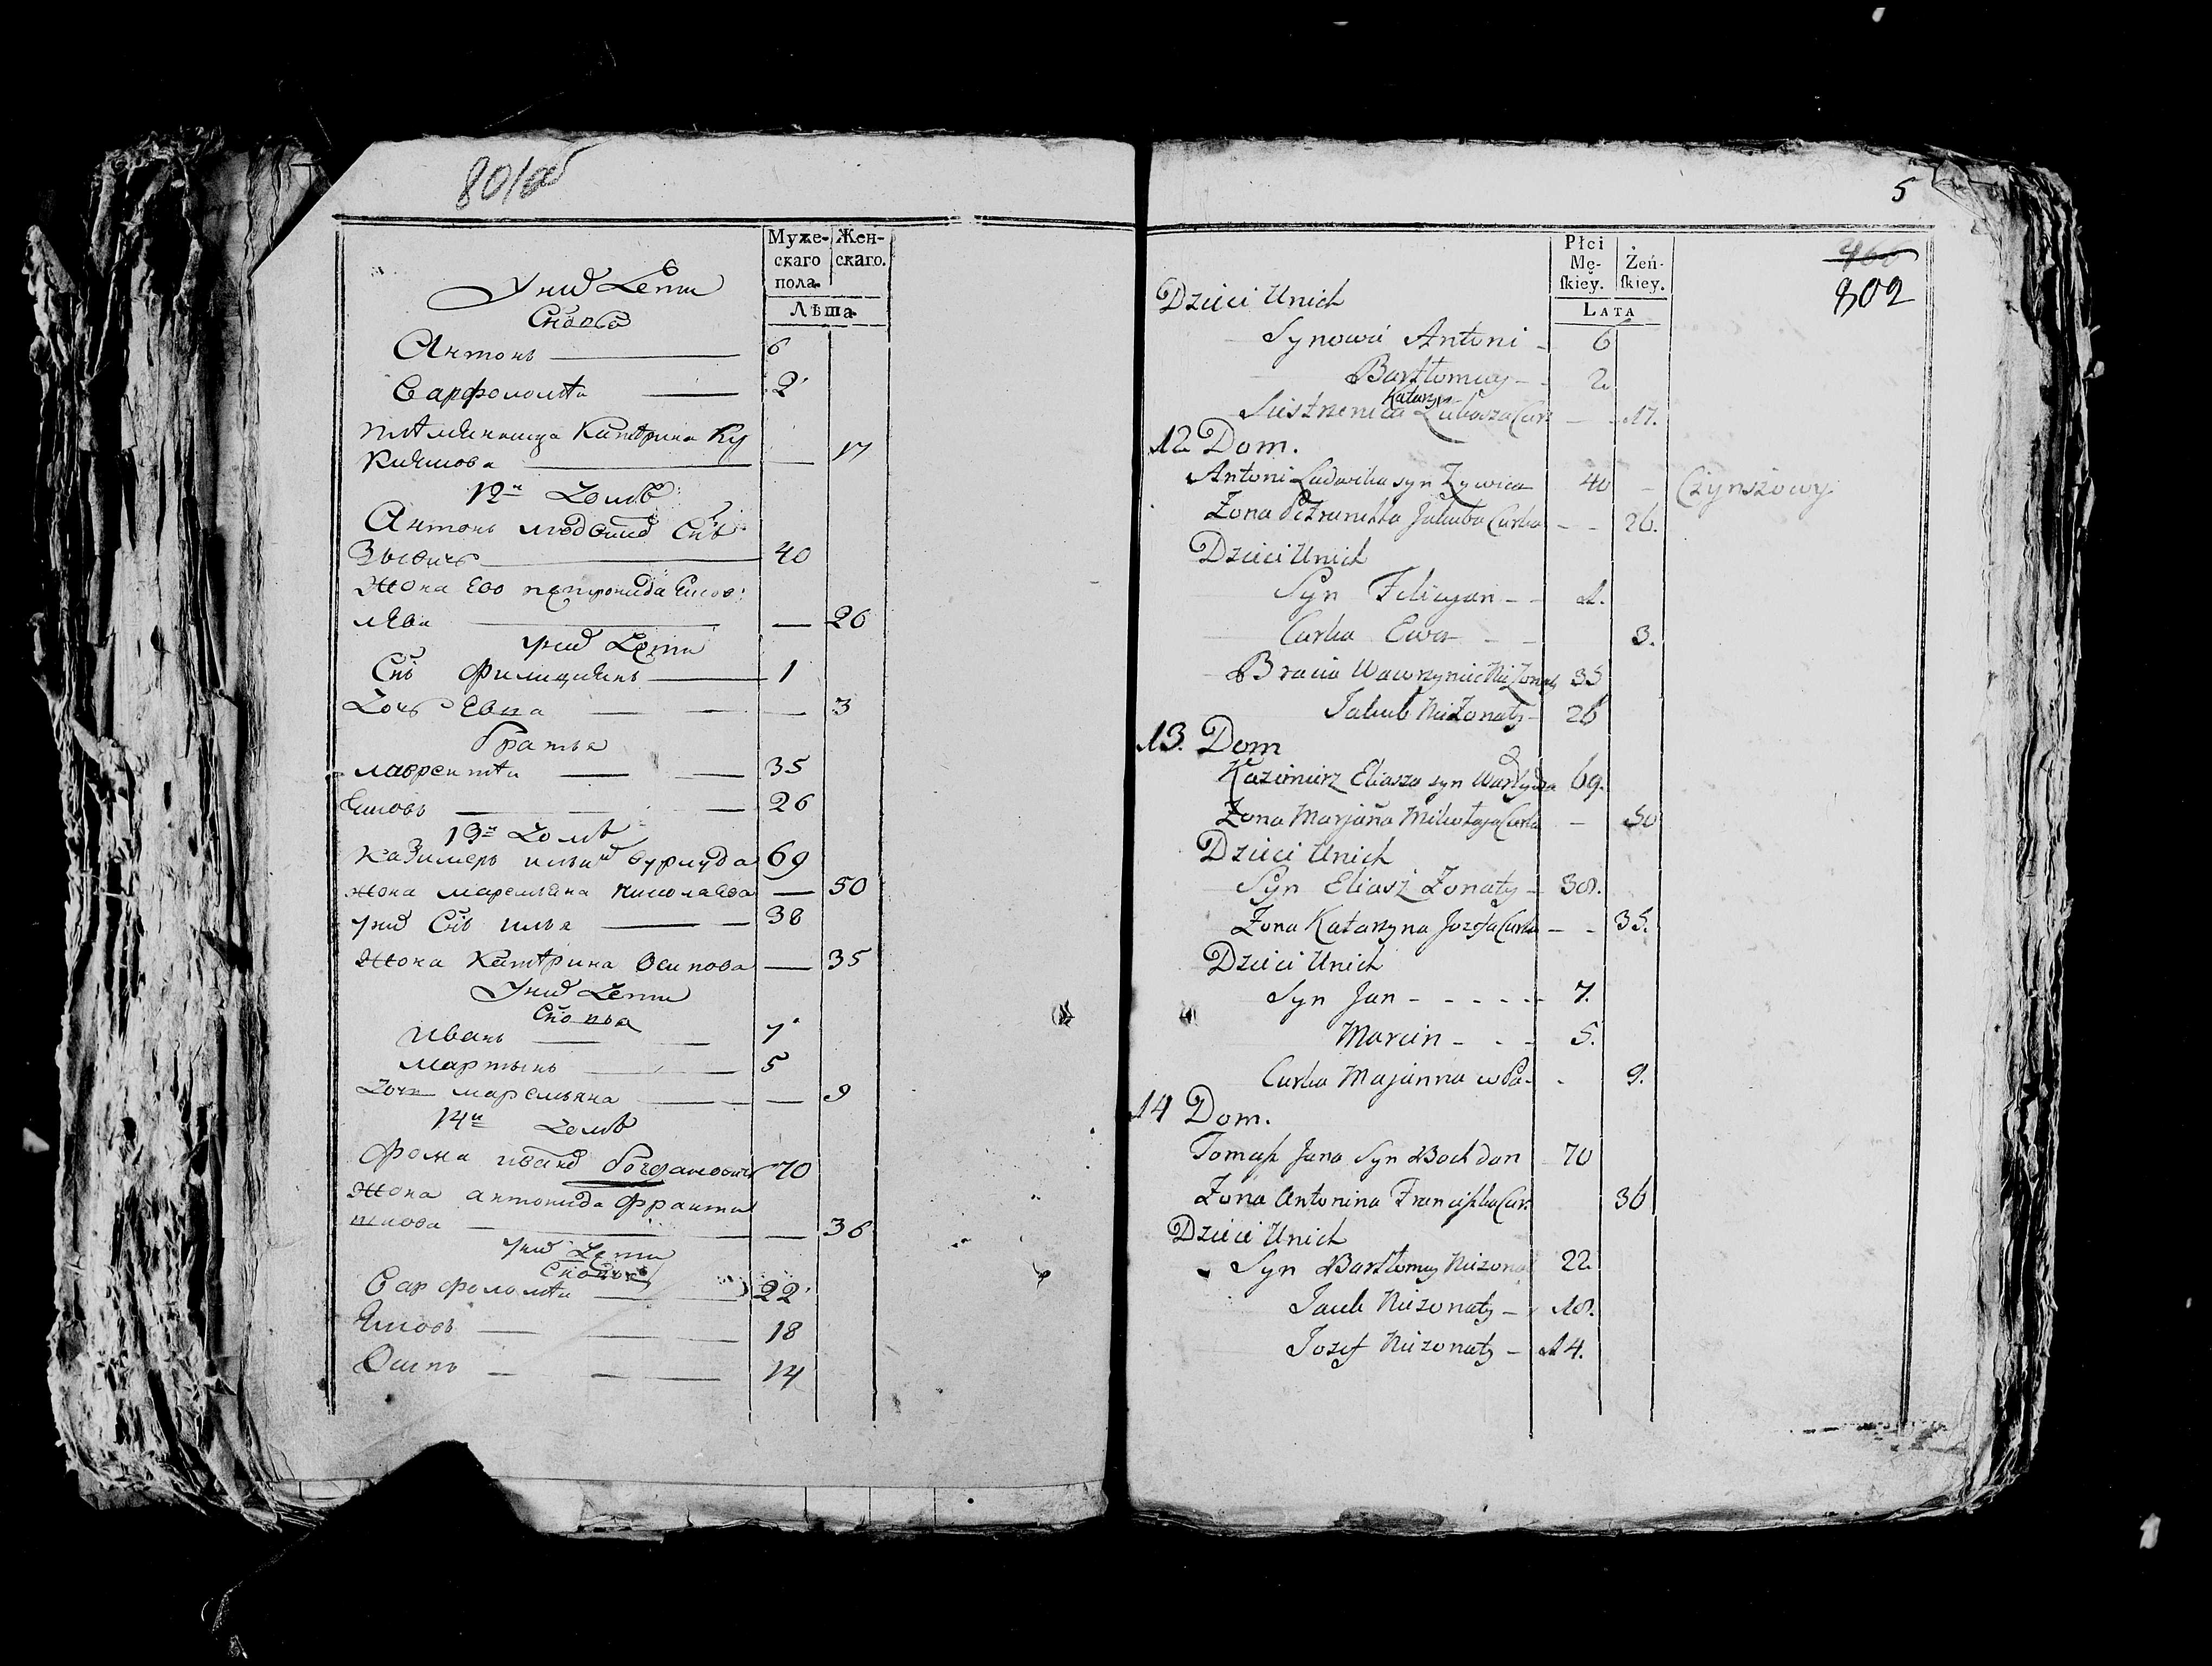 801об
Муже-
скаго
пола.
Жен-
скаго.
Лѣта
У нихъ Дети
Сновья
Антонъ 6
Варфоломѣй 2
племяница Катѣрина
17
12й Домъ
Антонъ Людвика Снъ
40
Жона Его петронела Яков:
лева 26
у нихъ Дети
Снъ Филициянъ 1
Дочь Евва 3
Братья
лаврентѣй 35
Яковъ 26
13й Домъ
Казимеръ ильи 69
жона марьяна николаева 50
у нихъ Снъ илья 38
жона Катѣрина Осипова 35
У нихъ Дети
Сновья
Иванъ 7
мартынъ 5
Дочь марьяна 9
14й Домъ
Фома ивана Богдановичъ 70
Жона антонида Францы
шкова 36
у нихъ Дети
Сновья
Варфоломѣй 22
Яковъ 18
Осипъ 14
5
466
802
Płci
Mę-
skiey.
Żeń-
skiey.
LATA
Dzieci Unich
Synowie Antoni 6
Bartłomiey 2
Katarzy
Siestrzenica Łukasza Cur 17.
12 Dom.
Antoni Ludwika syn Zywica 40 Czynszowy
Zona Petrunella Jakuba Curka 26.
Dzieci Unich
Syn Felicyan 1.
Curka Ewa 3.
Bracia Wawrzyniec Nie Zonaty 35
Jakub Nie Zonaty 26
13. Dom
Kazimierz Eliasza syn 69.
Zona Marjana Mikołaja Curka 50
Dzieci Unich
Syn Eliasz Zonaty 38.
Zona Katarzyna Jozefa Curka 35.
Dzieci Unich
Syn Jan 7.
Marcin 5.
Curka Majanna w Pa 9.
14 Dom.
Tomasz Jana Syn Bochdan 70
Zona Antonina Franciszka Cur. 36
Dzieci Unich
Syn Bartłomiey Niezona 22
Jacub Niezonaty 18.
Jozef Niezonaty 14.